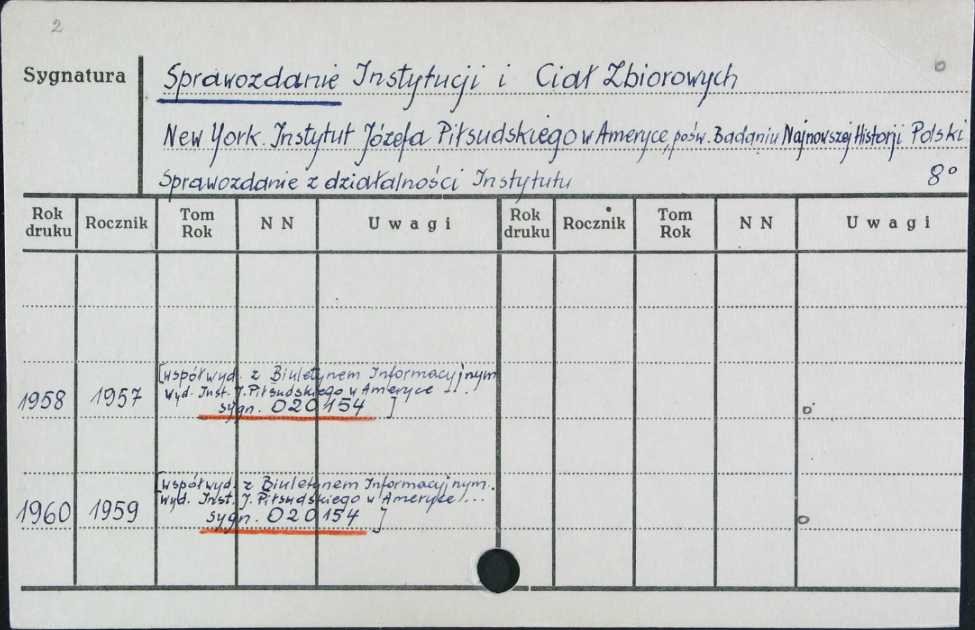 2
Sygnatura
Sprawozdanie Instytucji i Ciał Zbiorowych
o
New York. Instytut Józefa Piłsudskiego w Ameryce, pośw. Badaniu Najnowszej Historji Polski
Sprawozdanie z działalności Instytutu 8°
Rok druku Rocznik Tom Rok N N Uwagi Rok druku Rocznik Tom Rok N N Uwagi
[współwyd. z Biuletynem Informacyjnym
wyd. Inst. J. Piłsudskiego w Ameryce ...
1958 1957 sygn. 020154 ] o
[współwyd. z Biuletynem Informacyjnym.
wyd. Inst. J. Piłsudskiego w Ameryce) ...
1960 1959 sygn. 020154 ] o